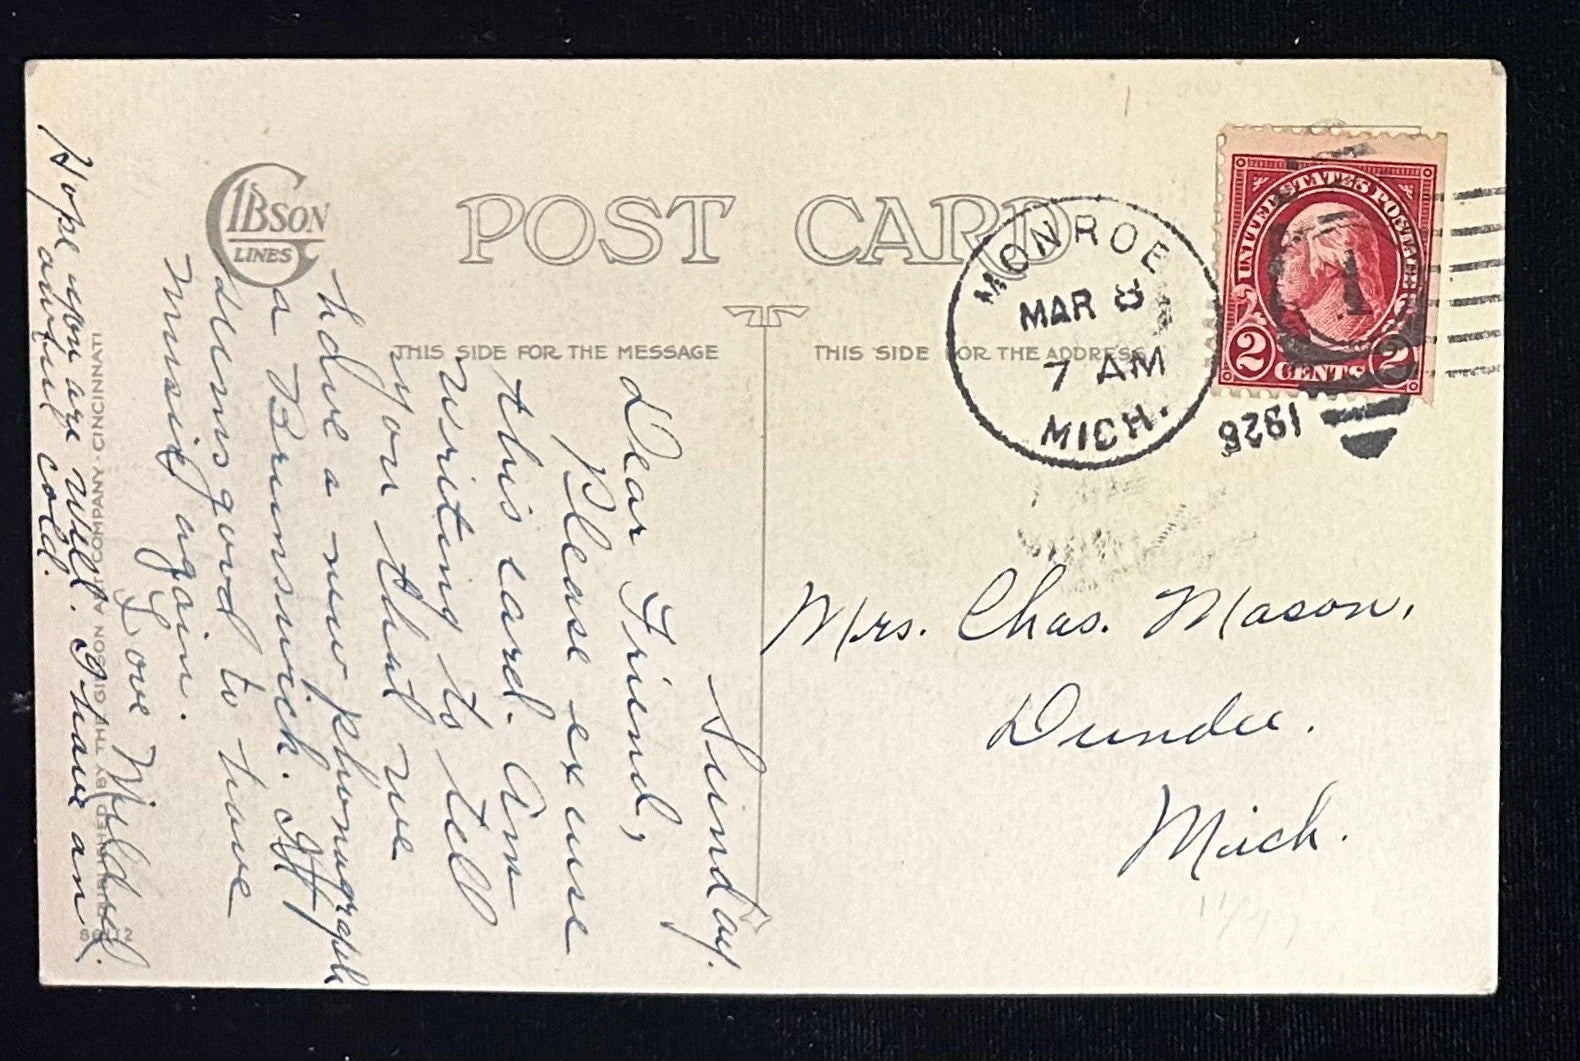 GIBSON
LINES
POST CARD
THIS SIDE FOR THE MESSAGE
THIS SIDE FOR THE ADDRESS
MONROE
MAR 8
7 AM
MICH.
1926
UNITED STATES POSTAGE
2 CENTS 2
1
Sunday.
Dear Friend,
Please excuse
this card. Am
writing to tell
you that we
have a new phonograph
a Brunswick. It
seems good to have
music again.
Love Mildred.
Hope you are well. I have an
awful cold.
Mrs. Chas. Mason,
Dundee.
Mich.
PUBLISHED BY THE GIBSON ART COMPANY · CINCINNATI